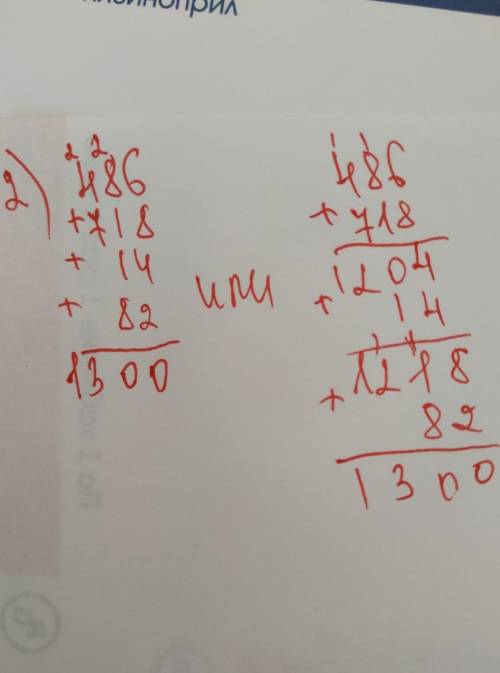 2)
2 2
486
+718
+ 14
+ 82
1300
или
1 1
486
+ 718
1204
+ 14
1 1
1218
+ 82
1300